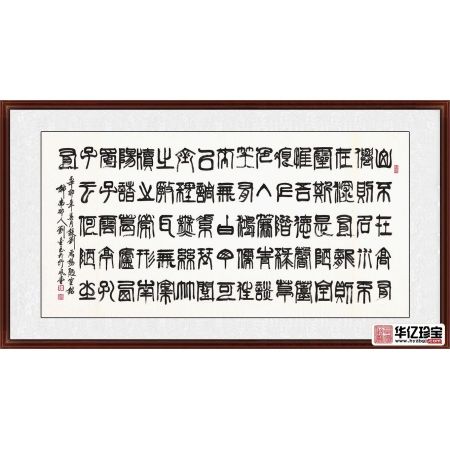 山不在高有
僊則名水不
在深有龍則
靈斯是陋室
惟吾德馨苔
痕上階綠草
色入簾青談
笑有鴻儒往
來無白丁可
以調素琴閱
金經無絲竹
之亂耳無案
牘之勞形南
陽諸葛廬西
蜀子雲亭孔
子云何陋之
有
辛卯年月錄劉禹錫陋室銘
华亿珍宝
www.hyzbao.com